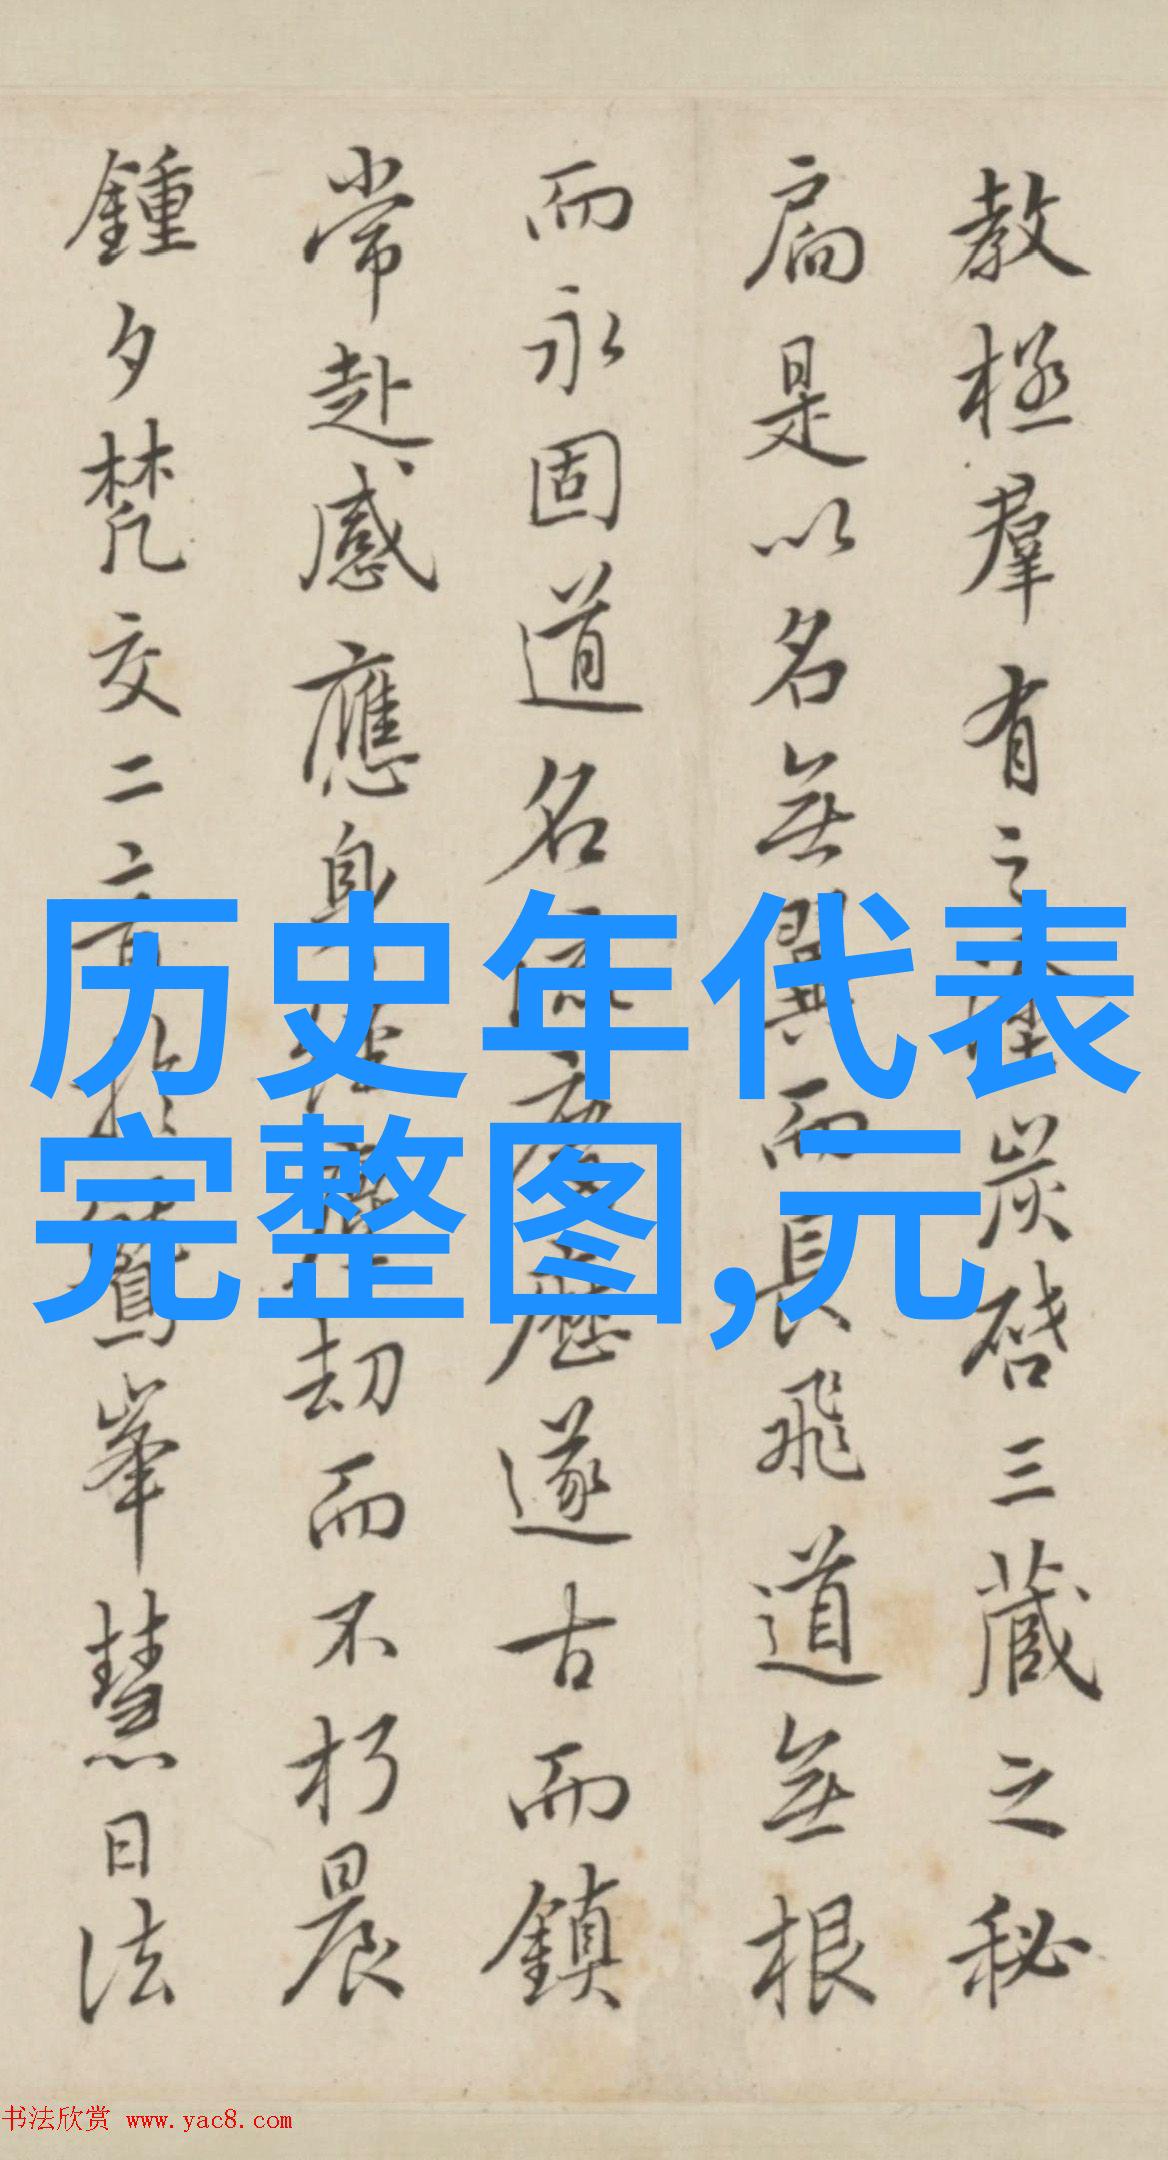 教極羣有之塗炭啓三藏之秘
扃是以名無翼而長飛道無根
而永固道名流慶歷遂古而鎮
常赴感應身經塵劫而不朽晨
鍾夕梵交二音於鷲峯慧日法
历史年代表
完整图,元
书法欣赏 www.yac8.com